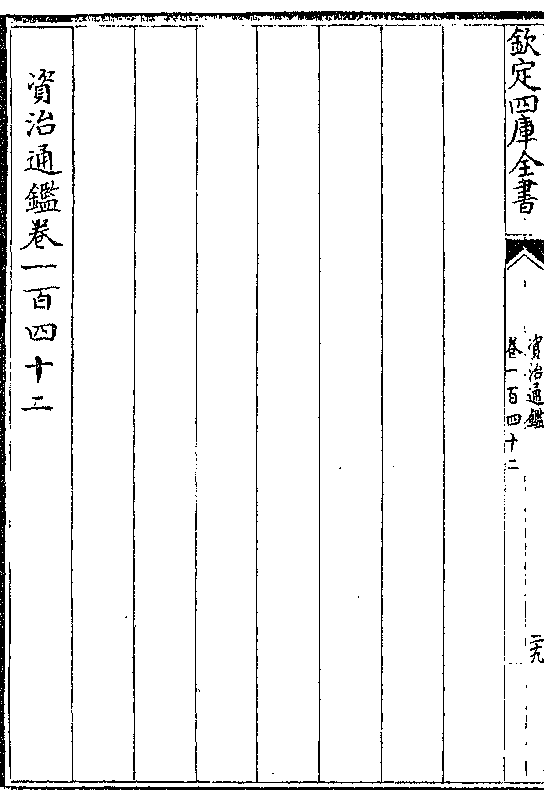 欽定四庫全書
資治通鑑
卷一百四十二
二十九
資治通鑑卷一百四十二